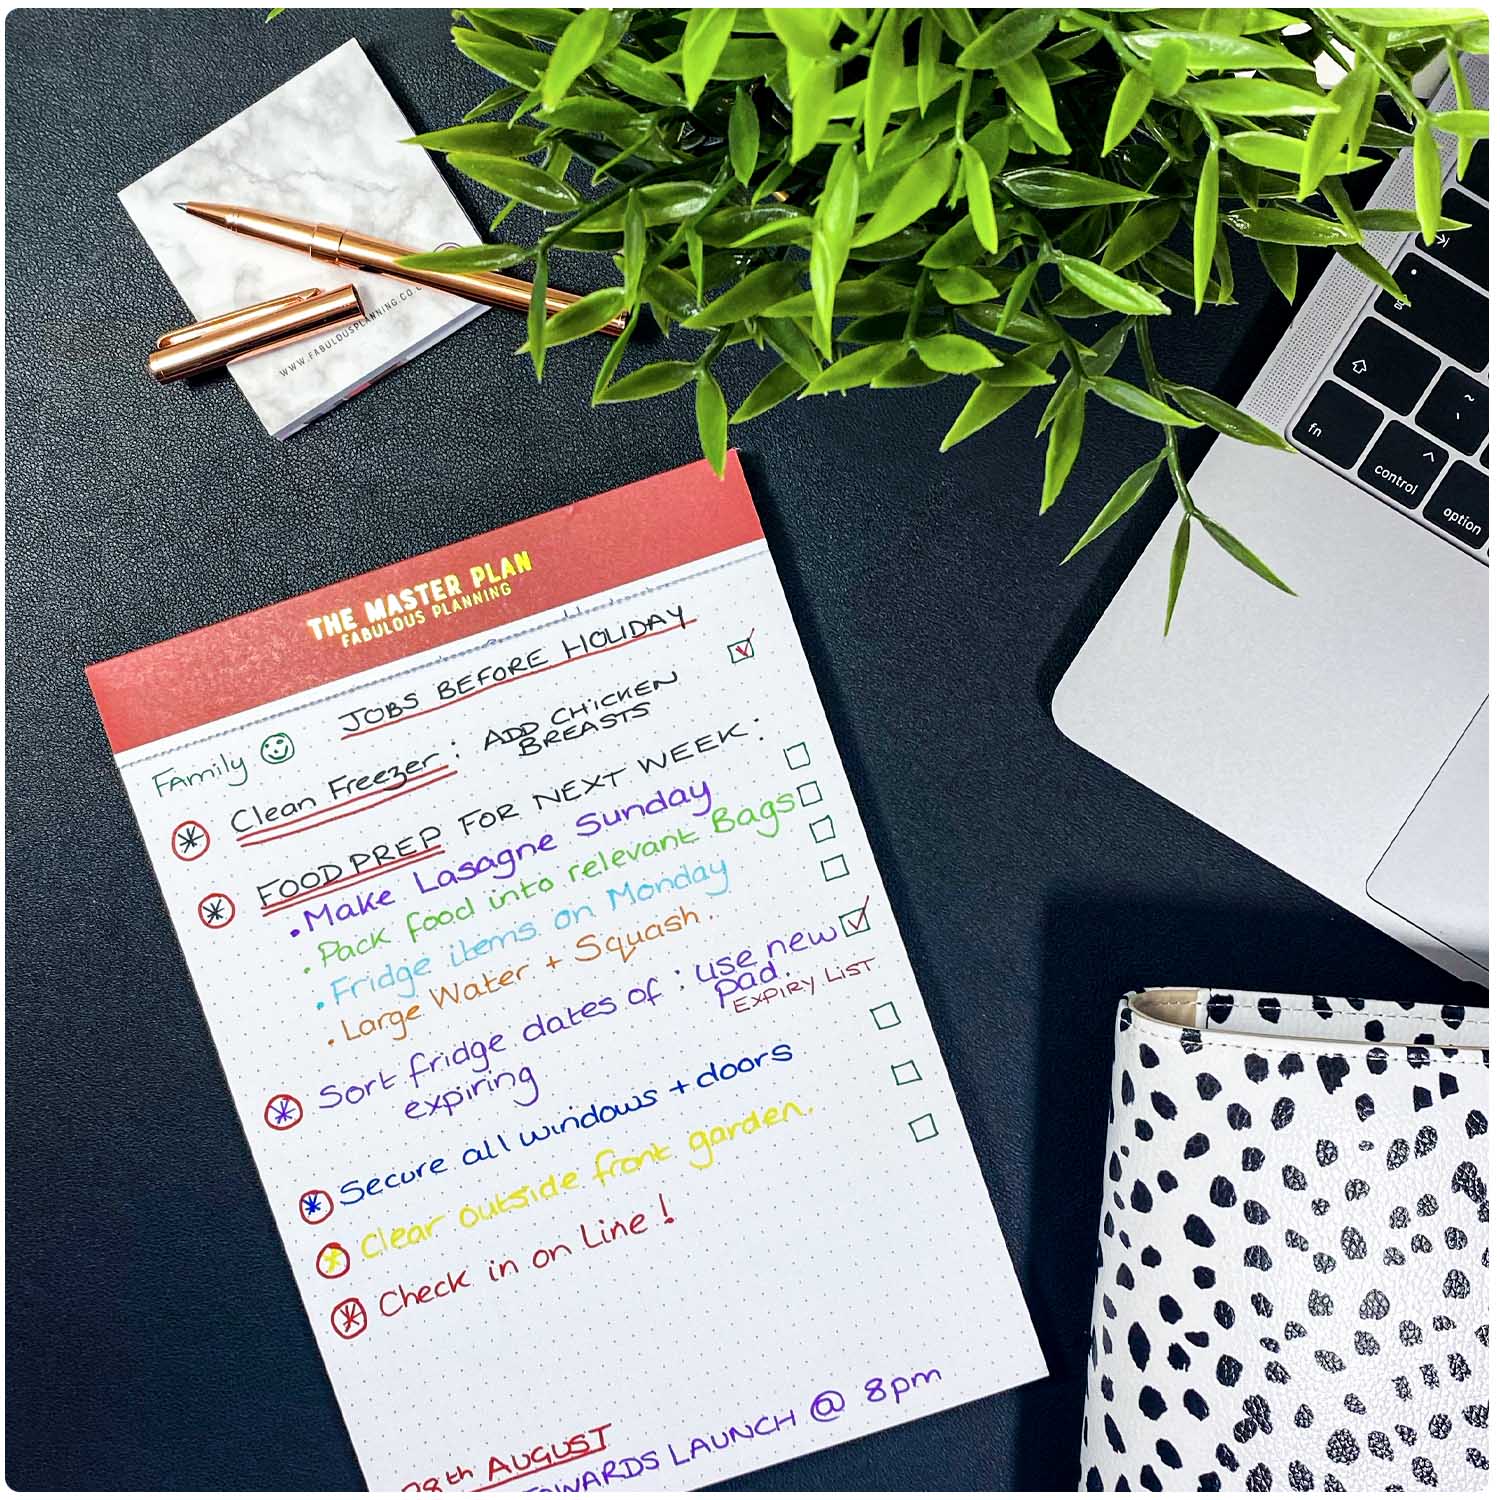 WWW.FABULOUSPLANNING.CO.
THE MASTER PLAN
FABULOUS PLANNING
JOBS BEFORE HOLIDAY
Family
Clean Freezer : ADD CHICKEN
BREASTS
FOOD PREP FOR NEXT WEEK :
• Make Lasagne Sunday
• Pack food into relevant Bags
• Fridge items on Monday
• Large Water + Squash.
Sort fridge dates of : use new
expiring pad.
EXPIRY LIST
Secure all windows + doors
Clear outside front garden.
Check in on Line !
28th AUGUST
LAUNCH @ 8pm
fn
control
option